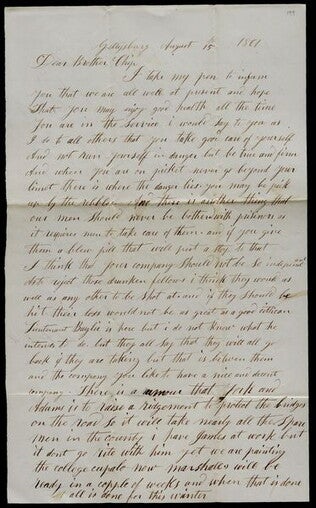 Gettysburg August 15th 1861
Dear Brother Chip
I take my pen to inform
you that we are all well at present and hope
that you may enjoy good health all the time
you are in the service i would say to you as
I do to all others that you take good care of yourself
and not run yourself in danger but be true and firm
and when you are on picket never go beyond your
limet there is where the danger lies you may be pick
up by the rebbles and there is another thing that
our men should never be bothern with prisners as it
requires men to take care of them and if you give
them a blew pill that will put a stop to that
I think that your company should not be so
as to eject those drunken fellows i think they would as
well as any other to be shot at and if they should be
hit their loss would not be as great as a good citican
Lieutenant is here but i do not know what he
intenes to do but they all say that they will all go
back if they are taking but that is between them
and the company you like to have a nice and decent
company There is a rumour that York and
Adams is to raise a ridgement to protect the bridges
on the road so it will take nearly all the spare
men in the county i have James at work but
it dont go rite with him yet we are painting
the college cupalo now marshalls will be
ready in a copple of weeks and when that is done
all is done for this winter